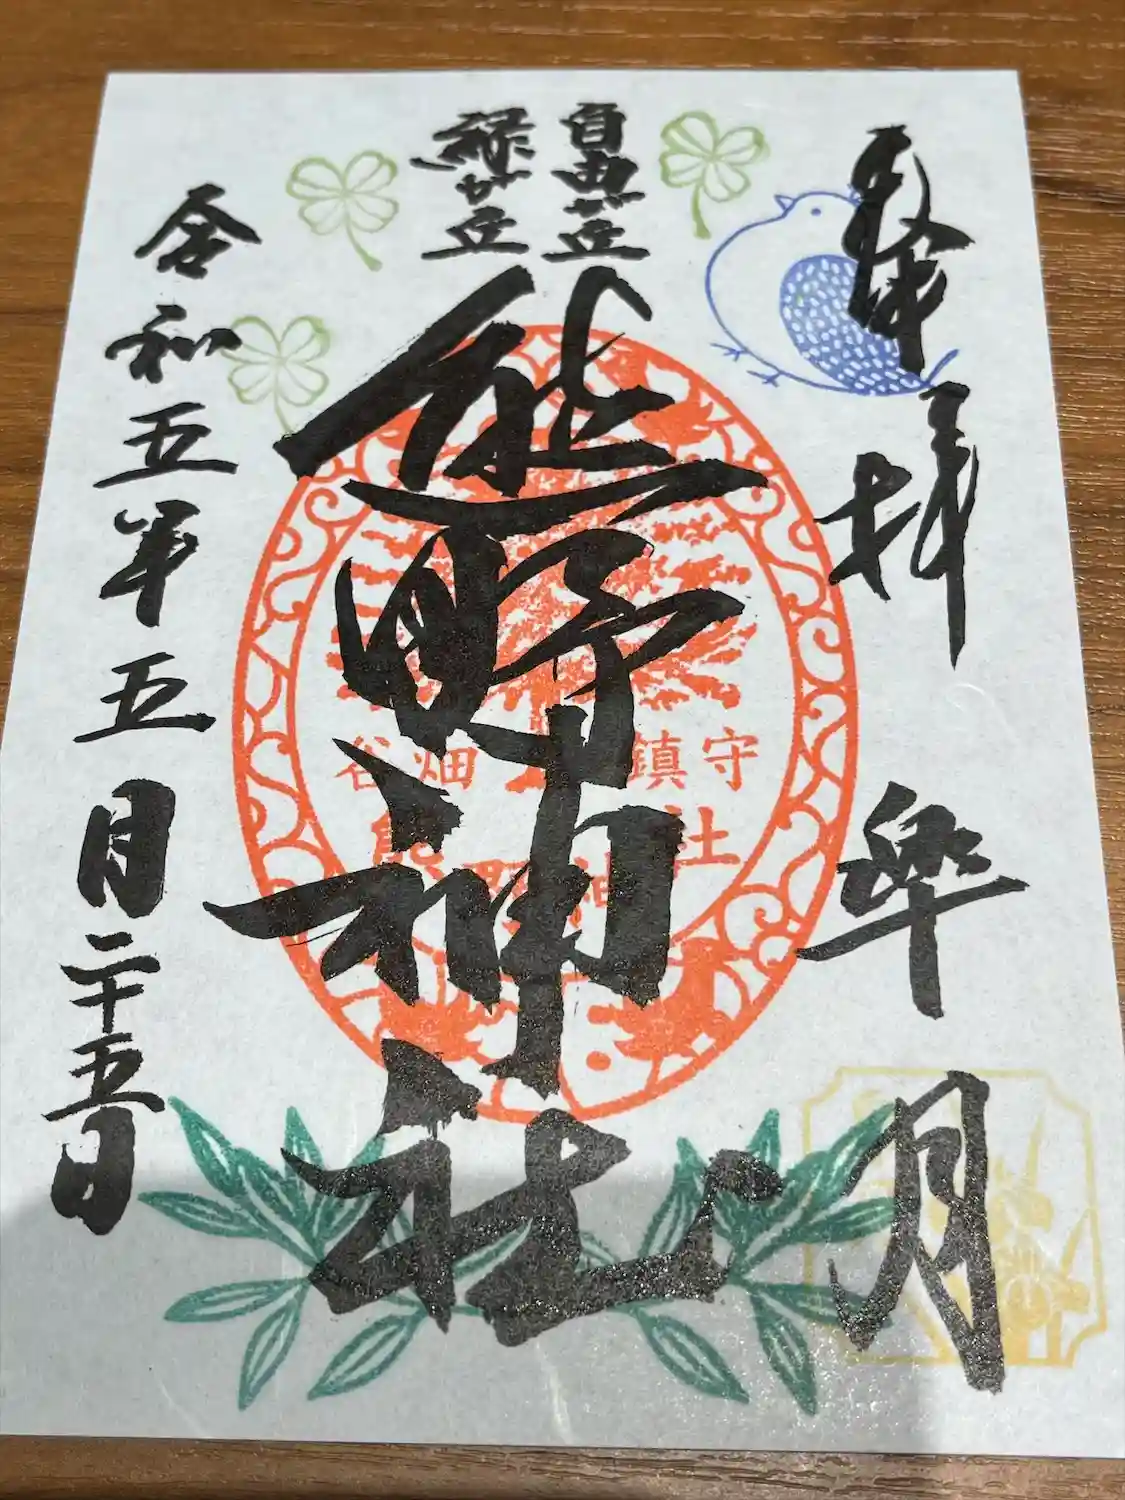 奉拝
皐月
自由が丘
緑が丘
熊野神社
令和五年五月二十五日
谷畑 鎮守
熊野神社